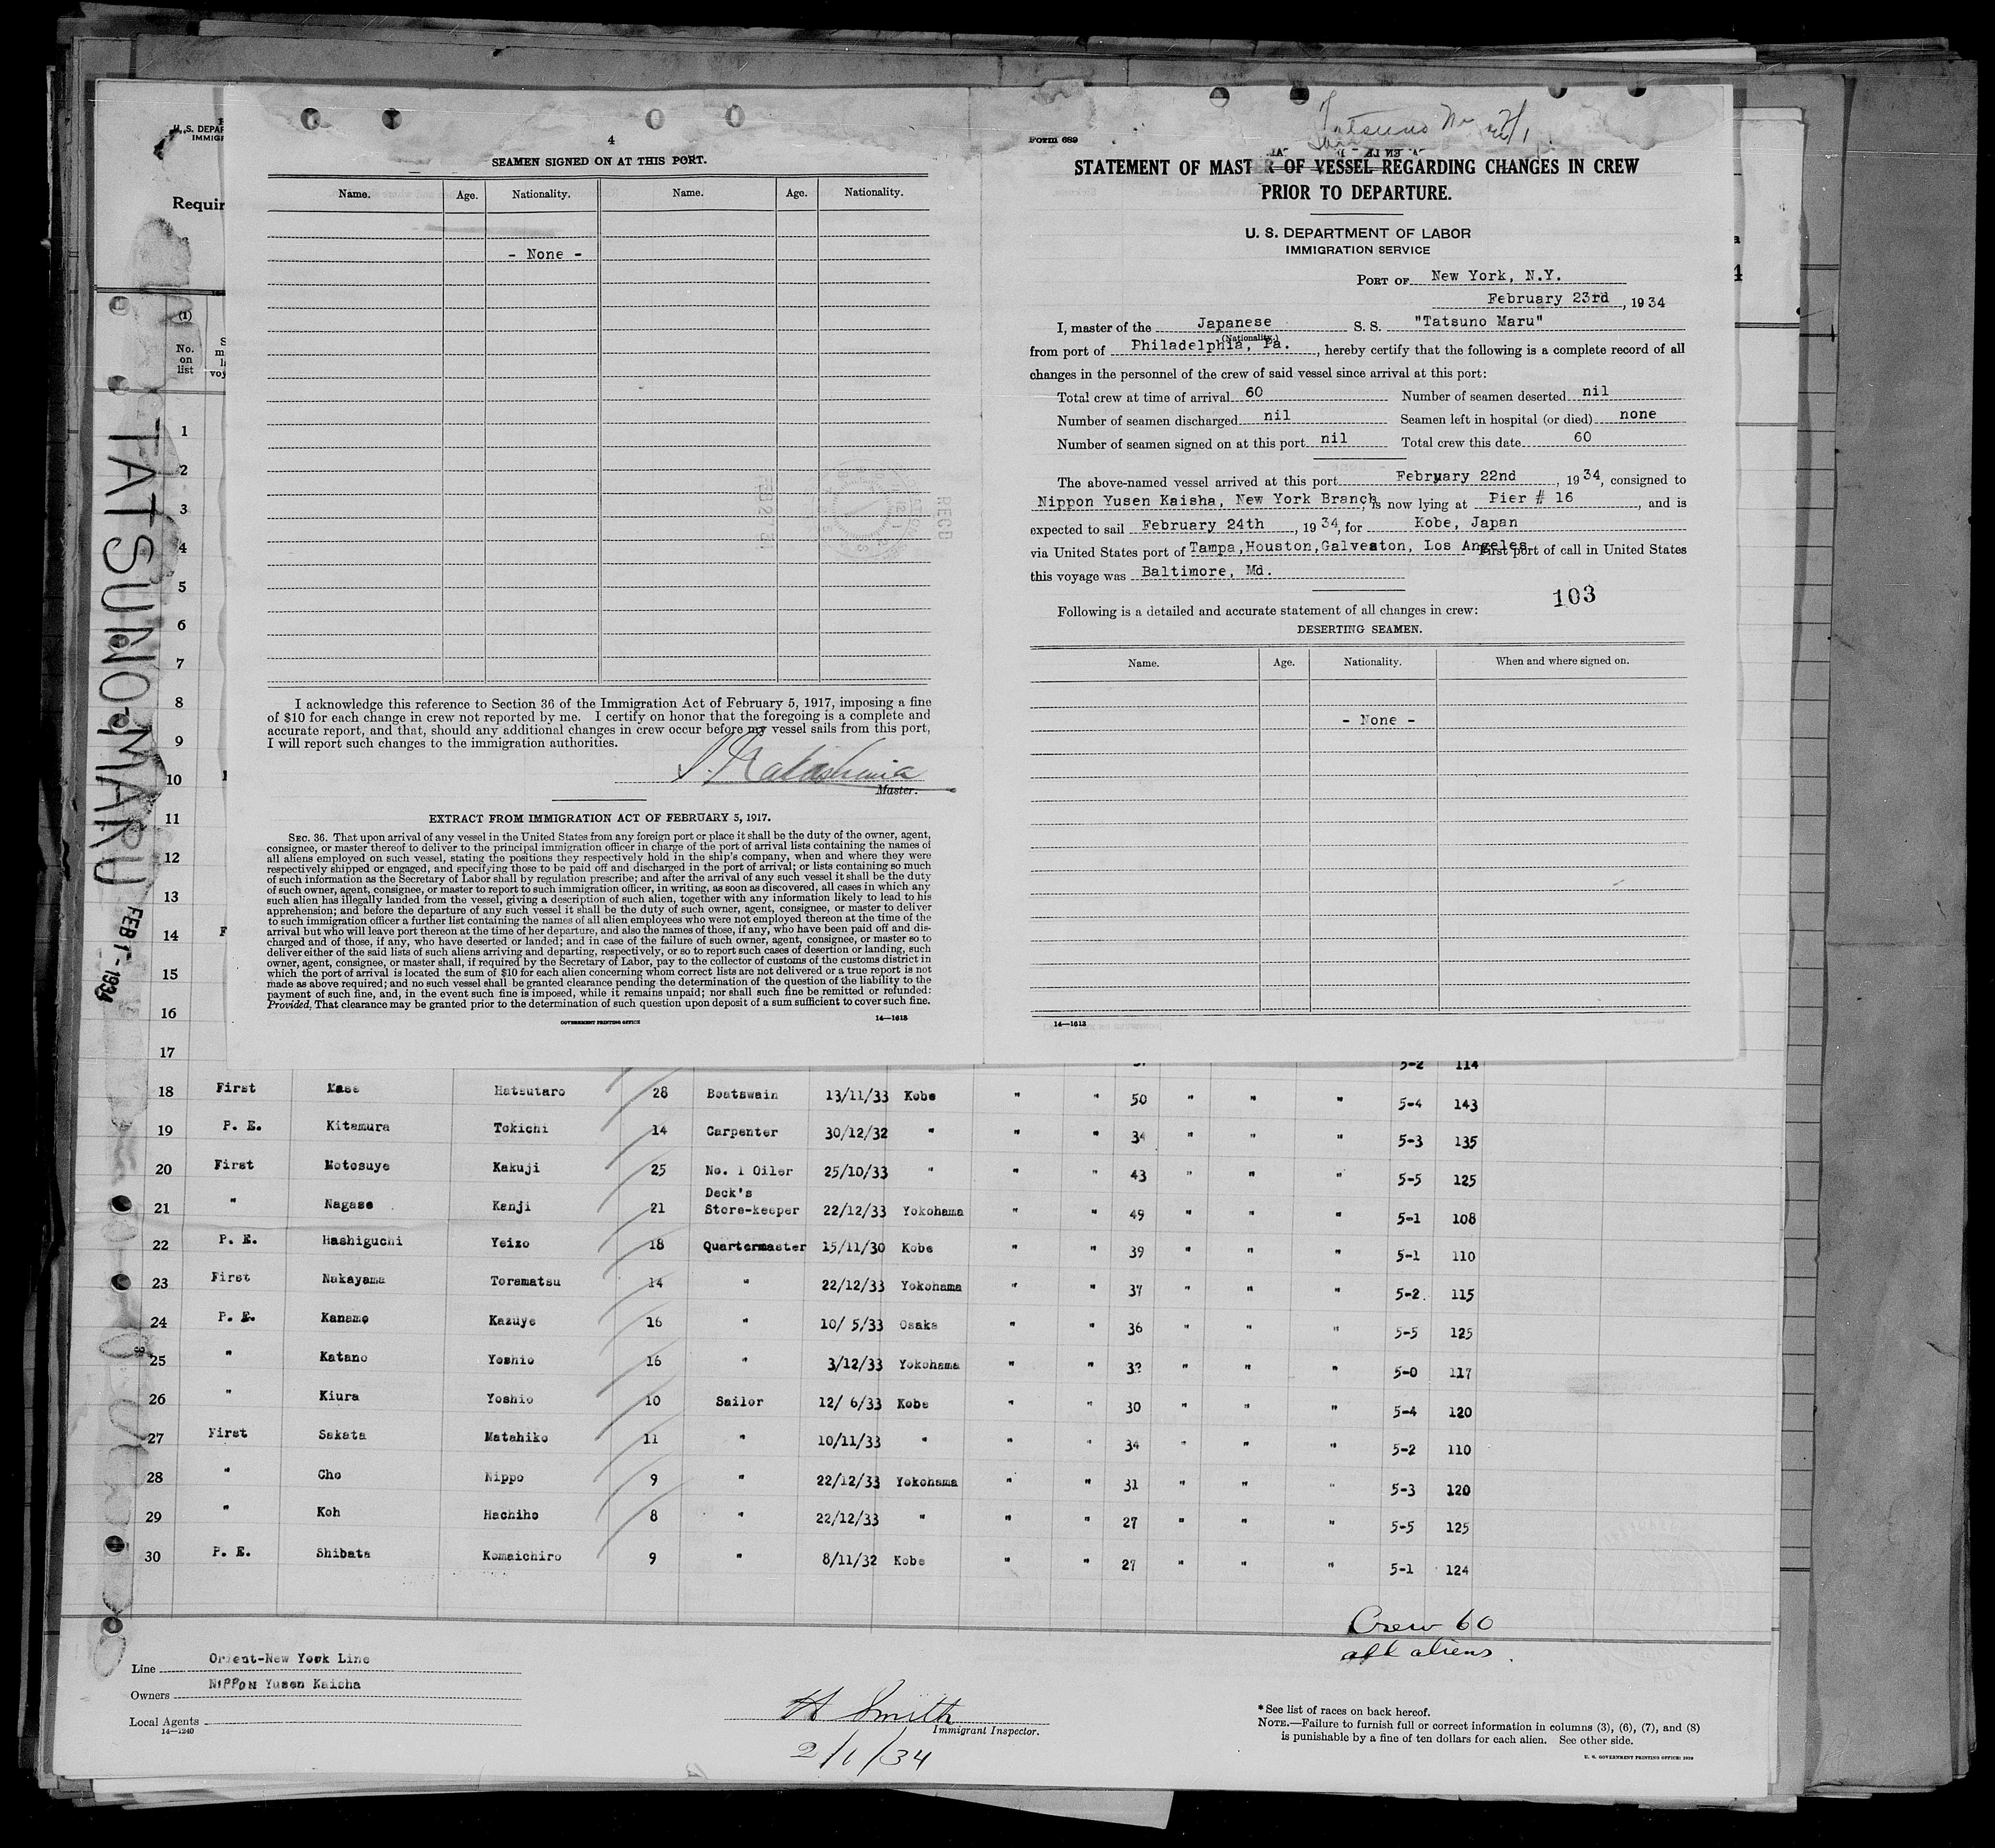 4
SEAMEN SIGNED ON AT THIS PORT.
Name. Age. Nationality. Name. Age. Nationality.
- None -
I acknowledge this reference to Section 36 of the Immigration Act of February 5, 1917, imposing a fine
of $10 for each change in crew not reported by me. I certify on honor that the foregoing is a complete and
accurate report, and that, should any additional changes in crew occur before my vessel sails from this port,
I will report such changes to the immigration authorities.
Master.
EXTRACT FROM IMMIGRATION ACT OF FEBRUARY 5, 1917.
SEC. 36. That upon arrival of any vessel in the United States from any foreign port or place it shall be the duty of the owner, agent,
consignee, or master thereof to deliver to the principal immigration officer in charge of the port of arrival lists containing the names of
all aliens employed on such vessel, stating the positions they respectively hold in the ship's company, when and where they were
respectively shipped or engaged, and specifying those to be paid off and discharged in the port of arrival; or lists containing so much
of such information as the Secretary of Labor shall by regulation prescribe; and after the arrival of any such vessel it shall be the duty
of such owner, agent, consignee, or master to report to such immigration officer, in writing, as soon as discovered, all cases in which any
such alien has illegally landed from the vessel, giving a description of such alien, together with any information likely to lead to his
apprehension; and before the departure of any such vessel it shall be the duty of such owner, agent, consignee, or master to deliver
to such immigration officer a further list containing the names of all alien employees who were not employed thereon at the time of the
arrival but who will leave port thereon at the time of her departure, and also the names of those, if any, who have been paid off and dis-
charged and of those, if any, who have deserted or landed; and in case of the failure of such owner, agent, consignee, or master so to
deliver either of the said lists of such aliens arriving and departing, respectively, or so to report such cases of desertion or landing, such
owner, agent, consignee, or master shall, if required by the Secretary of Labor, pay to the collector of customs of the customs district in
which the port of arrival is located the sum of $10 for each alien concerning whom correct lists are not delivered or a true report is not
made as above required; and no such vessel shall be granted clearance pending the determination of the question of the liability to the
payment of such fine, and, in the event such fine is imposed, while it remains unpaid; nor shall such fine be remitted or refunded:
Provided, That clearance may be granted prior to the determination of such question upon deposit of a sum sufficient to cover such fine.
GOVERNMENT PRINTING OFFICE 14—1613
Form 689
STATEMENT OF MASTER OF VESSEL REGARDING CHANGES IN CREW
PRIOR TO DEPARTURE.
U. S. DEPARTMENT OF LABOR
IMMIGRATION SERVICE
PORT OF New York, N.Y.
February 23rd, 1934
I, master of the Japanese S. S. "Tatsuno Maru"
(Nationality.)
from port of Philadelphia, Pa., hereby certify that the following is a complete record of all
changes in the personnel of the crew of said vessel since arrival at this port:
Total crew at time of arrival 60 Number of seamen deserted nil
Number of seamen discharged nil Seamen left in hospital (or died) none
Number of seamen signed on at this port nil Total crew this date 60
The above-named vessel arrived at this port February 22nd, 1934, consigned to
Nippon Yusen Kaisha, New York Branch, is now lying at Pier # 16, and is
expected to sail February 24th, 1934, for Kobe, Japan
via United States port of Tampa,Houston,Galveston, Los Angeles First port of call in United States
this voyage was Baltimore, Md.
103
Following is a detailed and accurate statement of all changes in crew:
DESERTING SEAMEN.
Name. Age. Nationality. When and where signed on.
- None -
14—1613
TATSUNO MARU
FEB 1 - 1934
(1)
No.
on
list
1
2
3
4
5
6
7
8
9
10
11
12
13
14
15
16
17 5-2 114
18 First Mase Hatsutaro 28 Boatswain 13/11/33 Kobe " " 50 " " " 5-4 143
19 P. E. Kitamura Tokichi 14 Carpenter 30/12/32 " " " 34 " " " 5-3 135
20 First Motosuye Kakuji 25 No. 1 Oiler 25/10/33 " " " 43 " " " 5-5 125
21 " Nagase Kenji 21 Deck's Store-keeper 22/12/33 Yokohama " " 49 " " " 5-1 108
22 P. E. Hashiguchi Yeizo 18 Quartermaster 15/11/30 Kobe " " 39 " " " 5-1 110
23 First Nakayama Toramatsu 14 " 22/12/33 Yokohama " " 37 " " " 5-2 115
24 P. E. Kanamo Kazuye 16 " 10/ 5/33 Osaka " " 36 " " " 5-5 125
25 " Katano Yoshio 16 " 3/12/33 Yokohama " " " " " 5-0 117
26 " Kiura Yoshio 10 Sailor 12/ 6/33 Kobe " " 30 " " " 5-4 120
27 First Sakata Matahiko 11 " 10/11/33 " " " 34 " " " 5-2 110
28 " Cho Nippo 9 " 22/12/33 Yokohama " " 31 " " " 5-3 120
29 " Koh Hachiho 8 " 22/12/33 " " " 27 " " " 5-5 125
30 P. E. Shibata Komaichiro 9 " 8/11/32 Kobe " " 27 " " " 5-1 124
Crew 60
all aliens.
Line Orient-New York Line
Owners NIPPON Yusen Kaisha
Local Agents
14—1240
H Smith
Immigrant Inspector.
2/1/34
* See list of races on back hereof.
NOTE.—Failure to furnish full or correct information in columns (3), (6), (7), and (8)
is punishable by a fine of ten dollars for each alien. See other side.
U. S. GOVERNMENT PRINTING OFFICE: